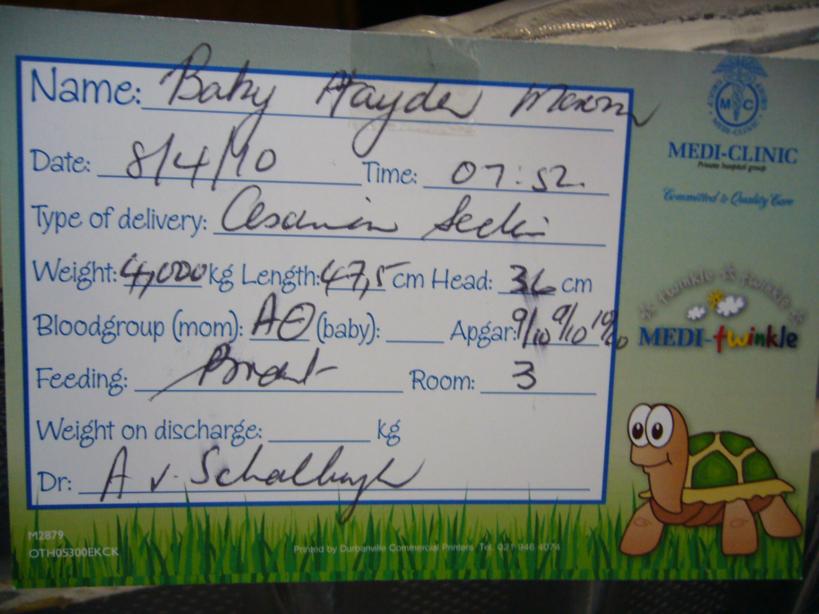 Name: Baby Hayden
Date: 8/4/10 Time: 07:52
Type of delivery: Section
Weight: 4,000 kg Length: 47,5 cm Head: 36 cm
Bloodgroup (mom): A⊕ (baby): Apgar: 9/10 9/10 10/10
Feeding: Breast Room: 3
Weight on discharge: kg
Dr: A v. Schalkwyk
M2879
OTH05300EKCK
Printed by Durbanville Commercial Printers Tel. 021 946 4074
MC
MEDI-CLINIC
MEDI-CLINIC
Private hospital group
Committed to Quality Care
twinkle twinkle
MEDI-twinkle